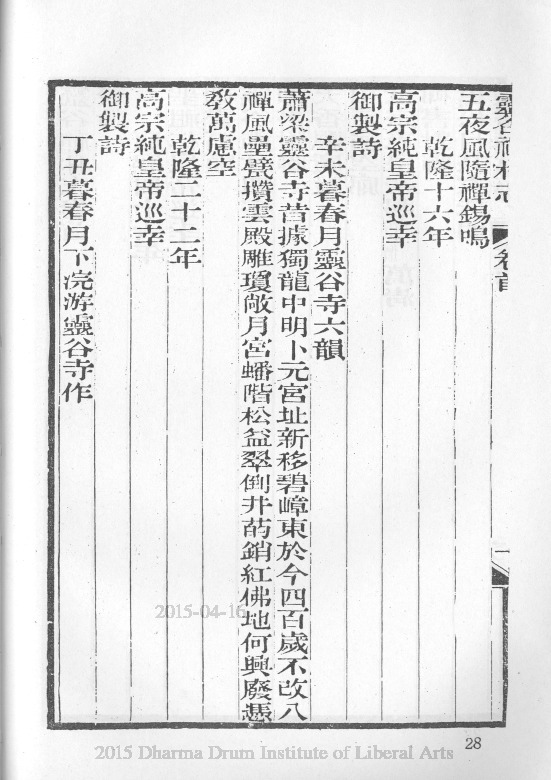 靈谷禪林志 卷首 一
五夜風隨禪錫鳴
乾隆十六年
高宗純皇帝巡幸
御製詩
辛未暮春月靈谷寺六韻
蕭梁靈谷寺昔據獨龍中明卜元宮址新移碧嶂東於今四百歲不改八
禪風壘甓攢雲殿雕瓊敞月宮蟠階松益翠倒井萏銷紅佛地何興廢憑
敎萬慮空
乾隆二十二年
高宗純皇帝巡幸
御製詩
丁丑暮春月下浣游靈谷寺作
2015-04-16
28
2015 Dharma Drum Institute of Liberal Arts